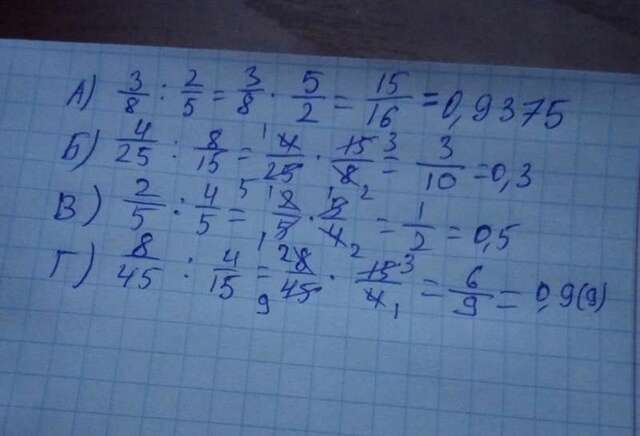 А) 3/8 : 2/5 = 3/8 · 5/2 = 15/16 = 0,9375
Б) 4/25 : 8/15 = 4/25 · 15/8 = 3/10 = 0,3
В) 2/5 : 4/5 = 2/5 · 5/4 = 1/2 = 0,5
Г) 8/45 : 4/15 = 8/45 · 15/4 = 6/9 = 0,9(9)